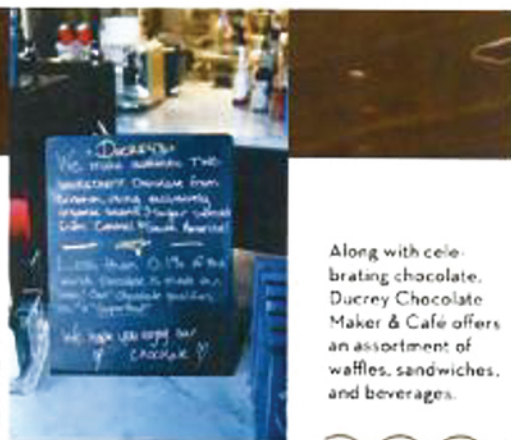 Ducrey's
We make authentic Tree
chocolate from
using exclusively
organic beans & sugar
from Central & South America!
Less than 0.1% of the
world's chocolate is made this
way! Our chocolate
We hope you enjoy our
chocolate
Along with cele-
brating chocolate,
Ducrey Chocolate
Maker & Café offers
an assortment of
waffles, sandwiches,
and beverages.